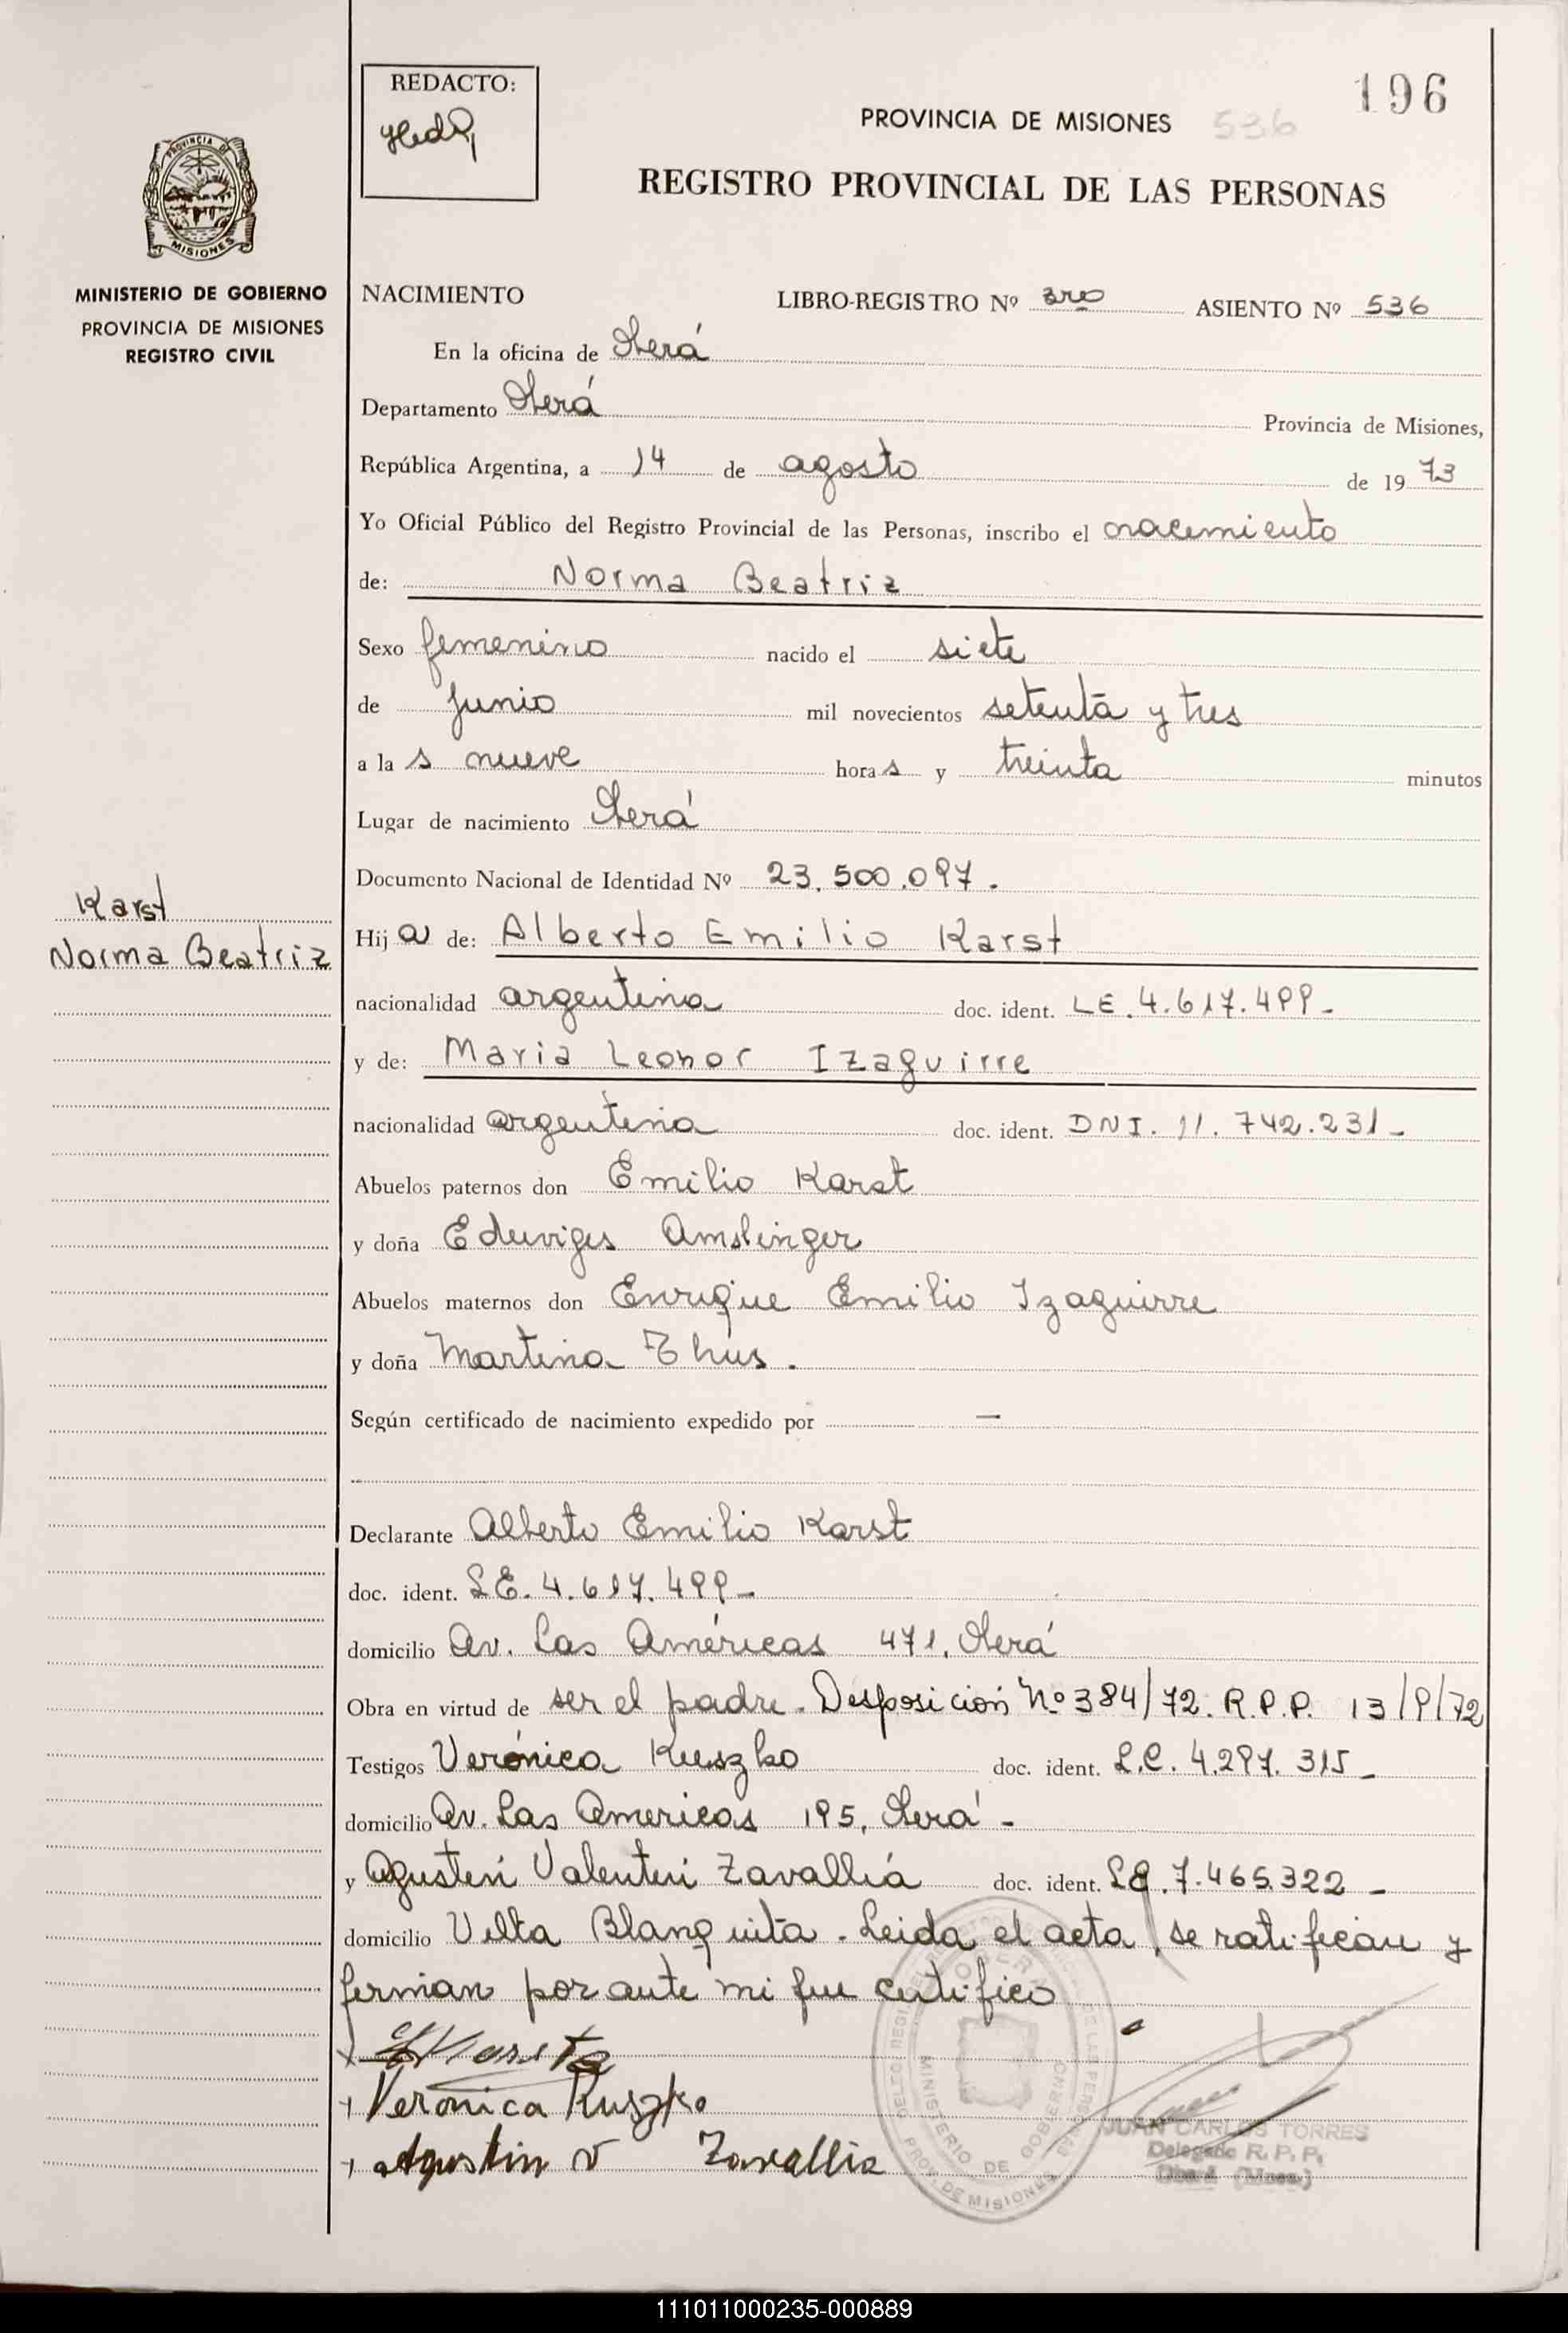 REDACTO:
196
PROVINCIA DE MISIONES 536
REGISTRO PROVINCIAL DE LAS PERSONAS
PROVINCIA DE
MISIONES
MINISTERIO DE GOBIERNO
PROVINCIA DE MISIONES
REGISTRO CIVIL
NACIMIENTO LIBRO-REGISTRO Nº 3ro ASIENTO Nº 536
En la oficina de Oberá
Departamento Oberá Provincia de Misiones,
República Argentina, a 14 de agosto de 1973
Yo Oficial Público del Registro Provincial de las Personas, inscribo el nacimiento
de: Norma Beatriz
Sexo femenino nacido el siete
de junio mil novecientos setenta y tres
a las nueve horas y treinta minutos
Lugar de nacimiento Oberá
Documento Nacional de Identidad Nº 23.500.097.
Karst
Norma Beatriz
Hija de: Alberto Emilio Karst
nacionalidad argentina doc. ident. LE. 4.617.499-
y de: Maria Leonor Izaguirre
nacionalidad argentina doc. ident. DNI. 11.742.231-
Abuelos paternos don Emilio Karst
y doña Eduviges Amslinger
Abuelos maternos don Enrique Emilio Izaguirre
y doña Martina Thus.
Según certificado de nacimiento expedido por —
Declarante Alberto Emilio Karst
doc. ident. LE. 4.617.499-
domicilio Av. Las Américas 471, Oberá
Obra en virtud de ser el padre. Disposición Nº 384/72. R.P.P. 13/9/72
Testigos Verónica Kuszko doc. ident. L.C. 4.297.315-
domicilio Av. Las Americas 195, Oberá-
y Agustín Valentín Zavallia doc. ident. LE. 7.465.322-
domicilio Villa Blanquita. Leida el acta, se ratifican y
firman por ante mi que certifico
Veronica Kuszko
Agustin V Zavallia
MINISTERIO DE GOBIERNO
PROV. DE MISIONES
JUAN CARLOS TORRES
Delegado R. P. P.
111011000235-000889